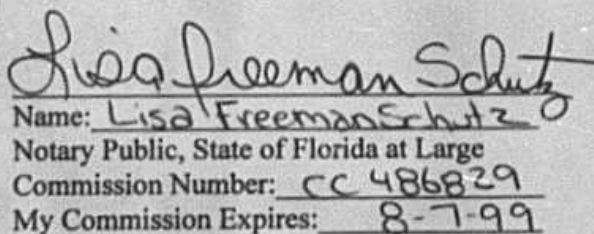 Lisa Freeman Schutz
Name: Lisa Freeman Schutz
Notary Public, State of Florida at Large
Commission Number: CC 486829
My Commission Expires: 8-7-99